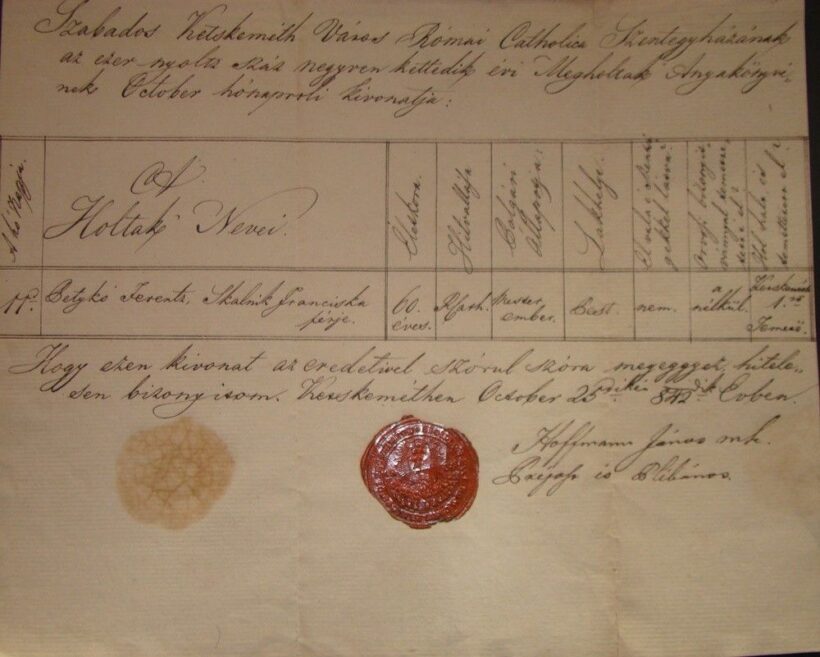 Szabados Ketskeméth Város Római Catholica Szentegyházának
az ezer nyoltz száz negyven kettedik évi Megholtak Anyakönyvi-
nek October hónaproli kivonatja:
A hó Napja.
A'
Holtak Nevei.
Életkora.
Hitvallása
Polgári
Állapotja:
Lakhelye.
El vala é Szent-
ségekkel látva:
Orvosi bizonyít-
vánnyal temette-
tett é el?
Hol holt és
temettetett el?
Petykó Ferentz, Skalnik Franciska
férje.
60.
éves.
R. Cath.
Mester
ember.
Pest.
nem.
a'
nélkül.
Kecskemét
1.ső
Temető.
Hogy ezen kivonat az eredetivel szórul szóra megeggyez, hitele-
sen bizonyitom. Kecskeméthen October 25dikén 842dik Évben.
Hoffmann János mk.
Prépost és Plébános.